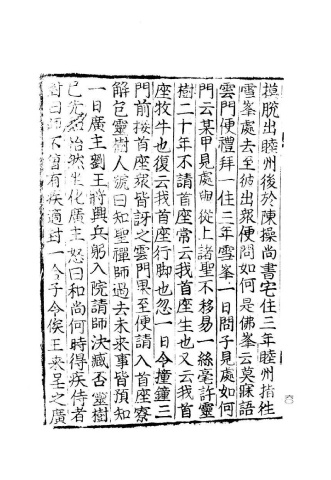 摸脫出睦州後於陳操尚書宅住三年睦州指往
雪峯處去至彼出衆便問如何是佛峯云莫寐語
雲門便禮拜一住三年雪峯一日問子見處如何
門云某甲見處與從上諸聖不移易一絲毫許靈
樹二十年不請首座常云我首座生也又云我首
座牧牛也復云我首座行脚也忽一日令撞鐘三
門前接首座衆皆訝之雲門果至便請入首座寮
解包靈樹人號曰知聖禪師過去未來事皆預知
一日廣主劉王將興兵躬入院請師決臧否靈樹
已先知怡然坐化廣主怒曰和尚何時得疾侍者
對曰師不曾有疾適封一合子令俟王來呈之廣